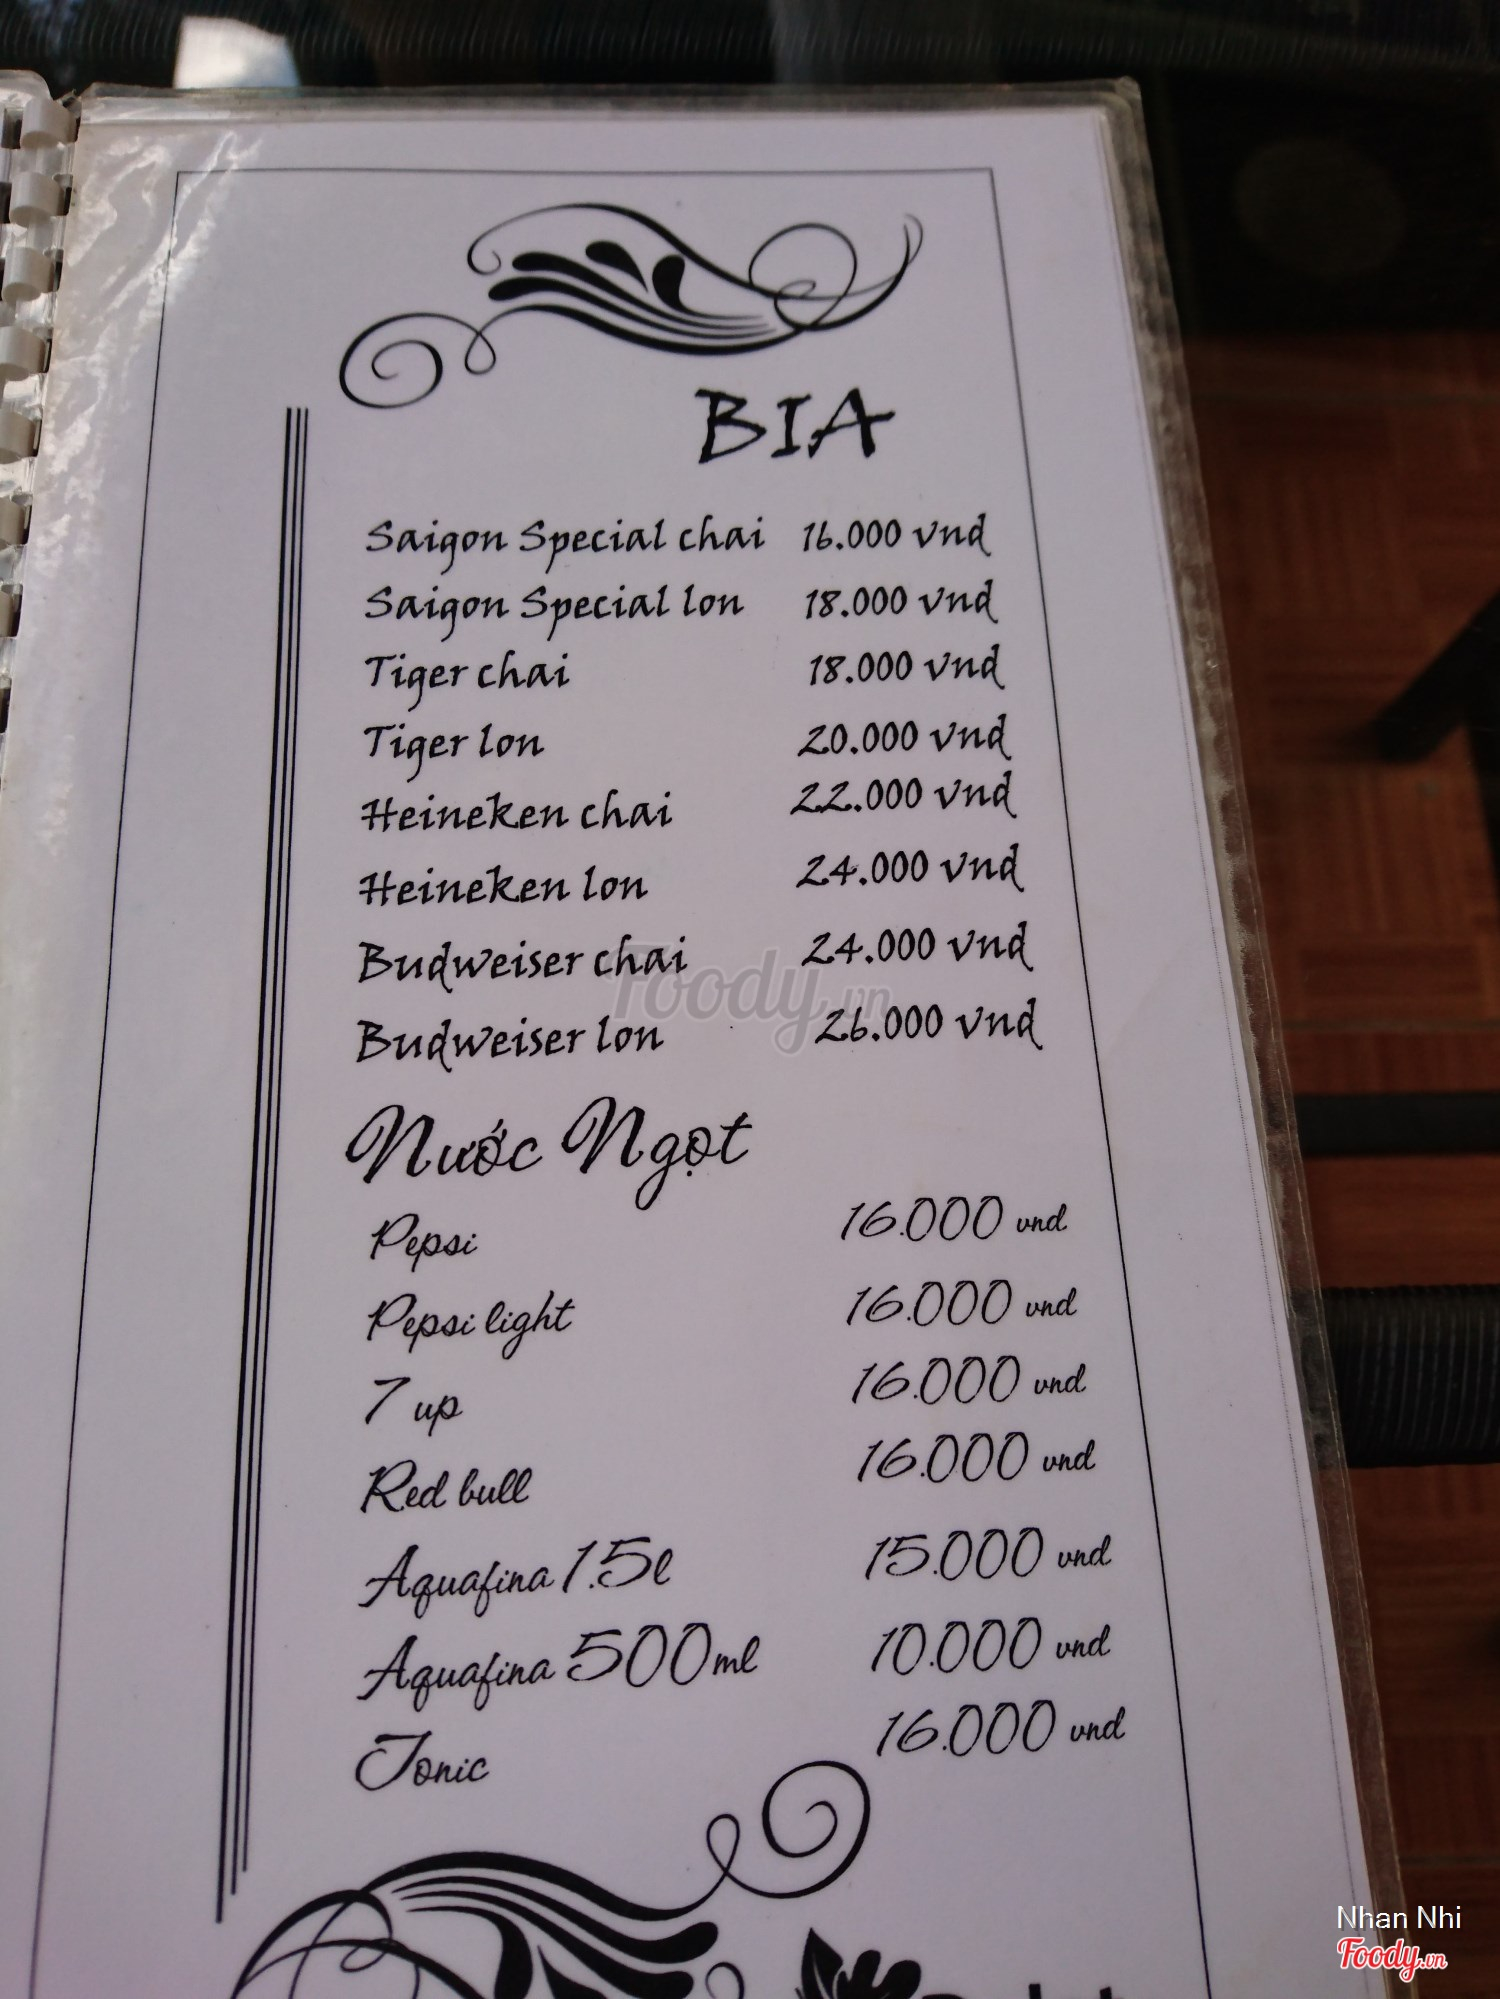 BIA
Saigon Special chai 16.000 vnd
Saigon Special lon 18.000 vnd
Tiger chai 18.000 vnd
Tiger lon 20.000 vnd
Heineken chai 22.000 vnd
Heineken lon 24.000 vnd
Budweiser chai 24.000 vnd
Budweiser lon 26.000 vnd
Foody.vn
Nước Ngọt
Pepsi 16.000 vnd
Pepsi light 16.000 vnd
7 up 16.000 vnd
Red bull 16.000 vnd
Aquafina 1.5l 15.000 vnd
Aquafina 500ml 10.000 vnd
Tonic 16.000 vnd
Nhan Nhi
Foody.vn